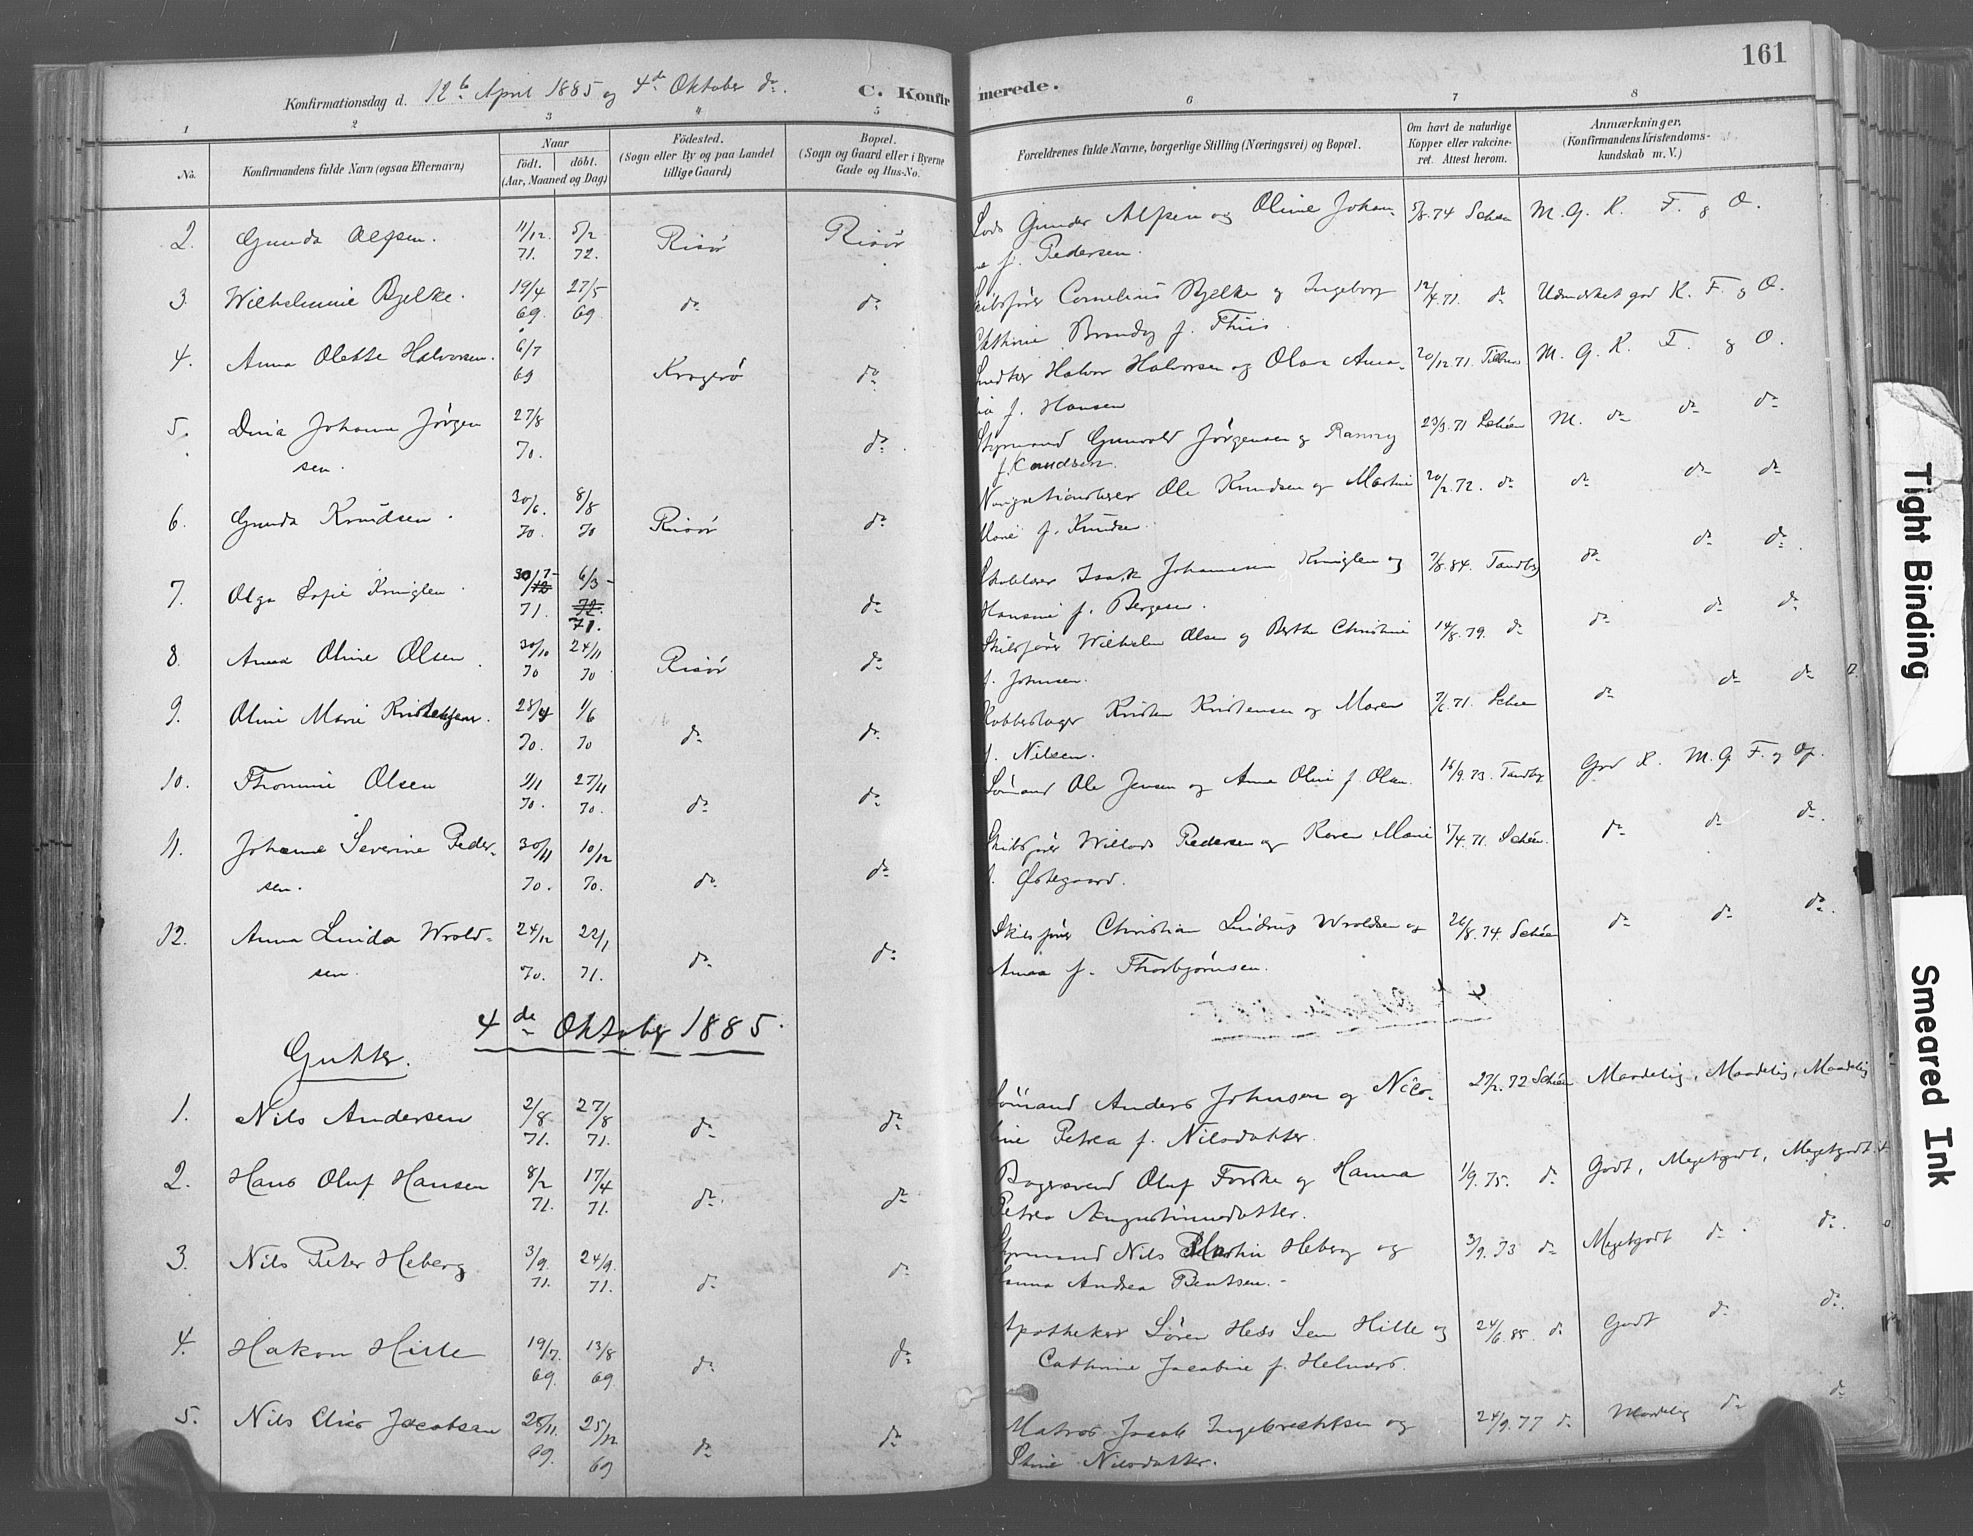 161
Konfirmationsdag d. 12te April 1885 og 4de Oktober do.
C. Konfirmerede.
1 2 3 4 5 6 7 8
No.
Konfirmandens fulde Navn (ogsaa Efternavn)
Naar
födt. döbt.
(Aar, Maaned og Dag)
Födested.
(Sogn eller By og paa Landet
tillige Gaard)
Bopæl.
(Sogn og Gaard eller i Byerne
Gade og Hus-No.
Forældrenes fulde Navne, borgerlige Stilling (Næringsvei) og Bopæl.
Om havt de naturlige
Kopper eller vakcine-
ret. Attest herom.
Anmærkninger.
(Konfirmandens Kristendoms-
kundskab m. V.)
2. Gunda Alfsen. 11/12 71. 5/2 72. Risør Risør Lods Gunder Alfsen og Oline Johan-
ne f. Pedersen. 5/8.74 Schøn M. G. K. F. g O.
3. Wilhelmine Bjelke. 19/4 69. 27/5 69 do do Skibsfører Cornelius Bjelke og Ingeborg
Cathrine f. Thiis. 12/4.71. do Udmærket god K. F. g O.
4. Anna Olette Halvorsen. 6/7 69 Kragerø do Halvor Halvorsen og Olava Ama-
lia f. Hansen 20/12.71. M. G. K. F. g O.
5. Dina Johanne Jörgen
sen. 27/8 70. do Styrmand Gunvald Jörgensen g
f. Knudsen. 23/3.71 Schøn M. do do do
6. Gunda Knudsen. 30/6. 70. 8/8 70 Risør do Navigationslærer Ole Knudsen og Martine
Marie f. Knudsen. 20/2.72. do do do do
7. Olga Sofie Kringlen. 30/12 71. 6/3 72. 71. do Skolelærer Isak Johannesen Kringlen og
Hansine f. Bergesen. 7/8.84. Tandberg do do do.
8. Anna Oline Olsen. 30/10 70 24/11 70 Risør do Skibsfører Wilhelm Olsen g Berthe Christine
f. Johnsen. 14/8.79. do do do do
9. Oline Marie Kristensen. 28/4 70. 1/6 70 do do Kobberslager Kristen Kristensen og Maren
f. Nilsen. 7/6.71. Schøn do do do
10. Thomine Olsen 1/11 70. 27/11 70. do do Sömand Ole Jensen og Anne Oline f. Olsen. 16/9.73. Tandbg God K. M. G. F. g Op.
11. Johanne Severine Peder-
sen. 30/11 70. 10/12 70. do do Skibsfører Willads Pedersen og Karen Marie
f. Østegaard. 5/4.71. Schøn. do do do.
12. Anna Linda Wrold-
sen. 24/12 70. 22/1 71. do do Skibsfører Christian Lindrup Wroldsen og
Anna f. Thorbjörnsen. 26/8.74. Schøn do do do.
4de Oktober 1885.
Gutter.
1. Nils Andersen 2/8 71. 27/8 71. do do Sömand Anders Johnsen g Nico-
line Petrea f. Nilsdatter. 27/2.72 Schøn Maadelig, Maadelig, Maadelig
2. Hans Oluf Hansen 8/2 71. 17/4 71. do do Bagersvend Oluf g Hanna
Petrea Augustinusdatter. 1/9.75. do Godt, Megetgodt, Megetgodt.
3. Nils Peter Heberg 3/9. 71. 24/9. 71. do do Styrmand Nils Martin Heberg og
Hanna Andrea Bentsen. 3/9.73 do Megetgodt do. do.
4. Hakon Hille 19/7. 69. 13/8 69. do do Apotheker Sören Hess Sem Hille og
Cathrine Jacobine f. 24/6.85. do Godt do do.
5. Nils Jacobsen 28/11. 69. 25/12 69 do do Matros Jacob Ingebrechtsen og
Stine Nilsdatter. 24/9.77 do Maadelig do do
Tight Binding
Smeared Ink